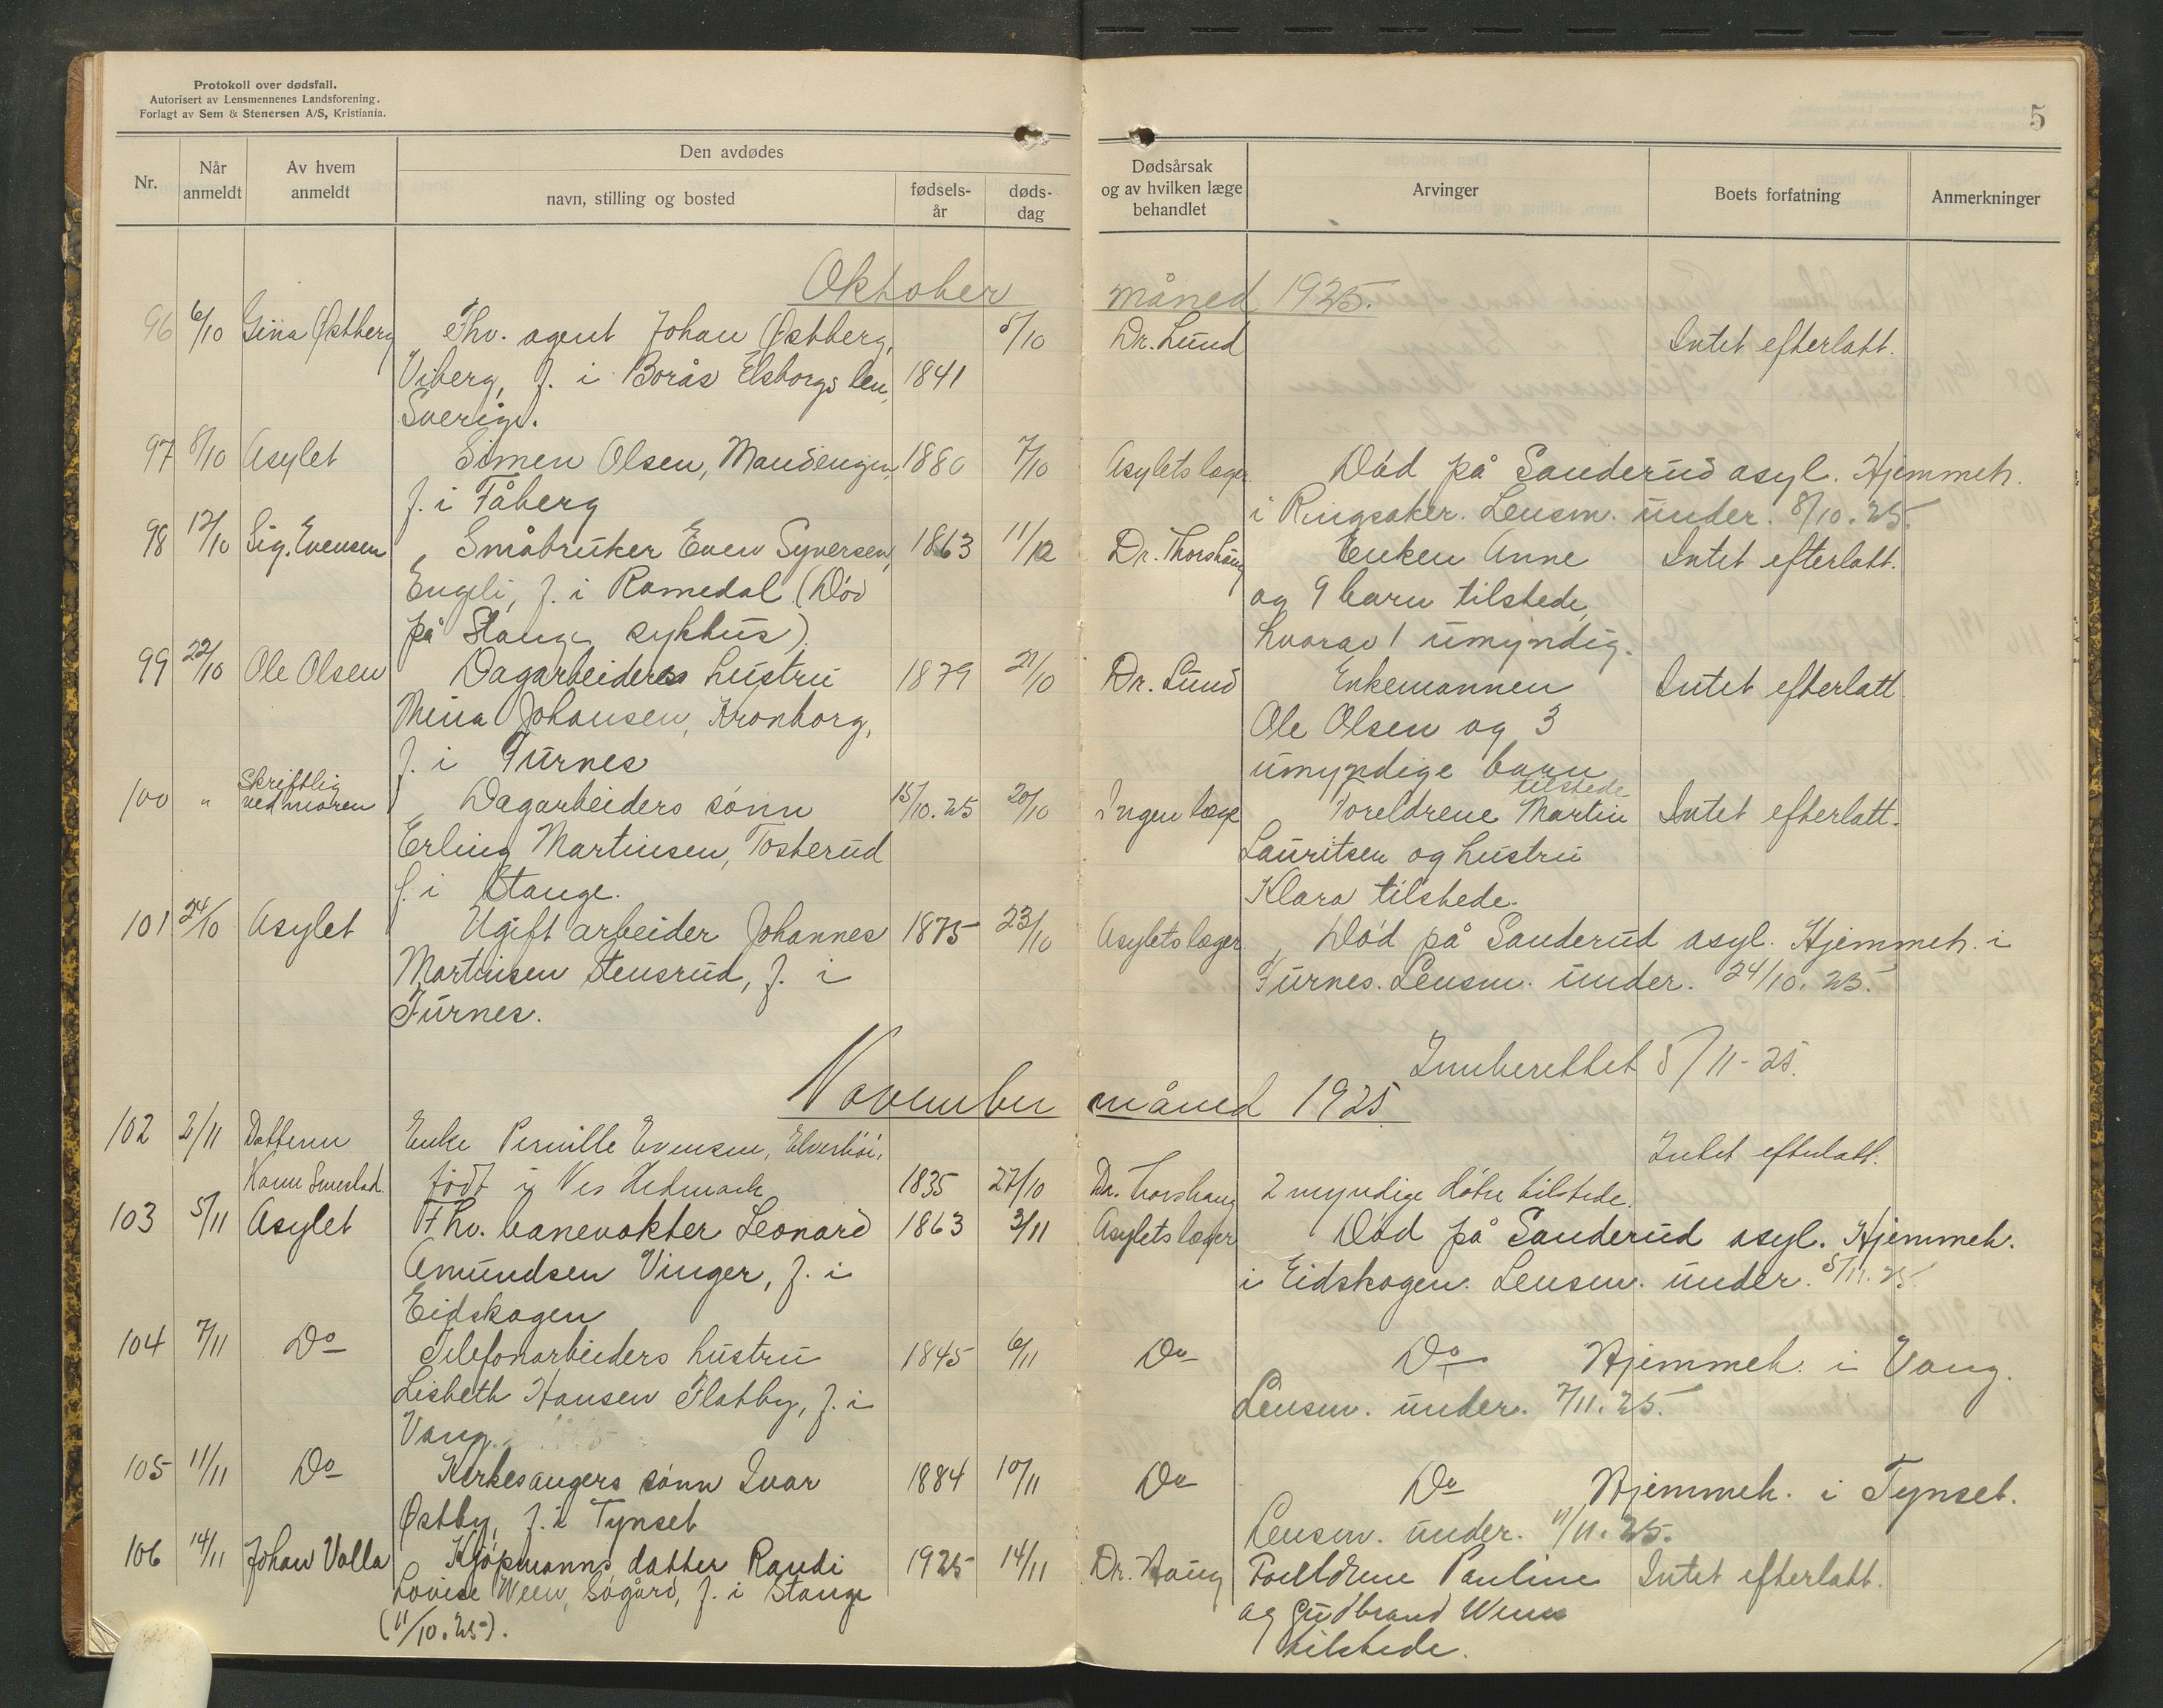 Protokoll over dødsfall.
Autorisert av Lensmennenes Landsforening.
Forlagt av Sem & Stenersen A/S, Kristiania.
5
Nr.
Når anmeldt
Av hvem anmeldt
Den avdødes
navn, stilling og bosted
fødsels-år
døds-dag
Dødsårsak og av hvilken læge behandlet
Arvinger
Boets forfatning
Anmerkninger
Oktober måned 1925.
96 6/10 Gina Østberg Fhv. agent Johan Østberg, 5/10 Dr. Lund Intet efterlatt.
Viberg, f. i Borås Elsborgs len, 1841
Sverige.
97 8/10 Asylet Simen Olsen, Mausengen, 1880 7/10 Asylets læger Død på Sanderud asyl. Hjemmeh.
f. i Fåberg i Ringsaker. Lensm. under. 8/10.25.
98 12/10 Sig. Evensen Småbruker Even Syversen, 1863 11/12 Dr. Thorshaug Enken Anne Intet efterlatt.
Engeli, f. i Romedal (Død og 9 barn tilstede,
på Stange sykhus) hvorav 1 umyndig.
99 22/10 Ole Olsen Dagarbeiders hustru 1879 21/10 Dr. Lund Enkemannen Intet efterlatt
Mina Johansen, Kronborg, Ole Olsen og 3
f. i Furnes umyndige barn tilstede
100 " Skriftlig ved moren Dagarbeiders sønn 15/10.25 20/10 Ingen læge Foreldrene Martin Intet efterlatt.
Erling Martinsen, Tosterud Lauritsen og hustru
f. i Stange. Klara tilstede.
101 24/10 Asylet Ugift arbeider Johannes 1875 23/10 Asylets læger Død på Sanderud asyl. Hjemmeh. i
Martinsen Stensrud, f. i Furnes. Lensm. under. 24/10.25.
Furnes.
Innberettet 5/11-25.
November måned 1925
102 2/11 Datteren Enke Pernille Evensen, Elverhøi, Intet efterlatt.
født i Nes Hedmark 1835 27/10 Dr. Thorshaug 2 myndige døtre tilstede.
103 5/11 Asylet Fhv. banevokter Leonard 1863 3/11 Asylets læger Død på Sanderud asyl. Hjemmeh.
Amundsen Vinger, f. i i Eidskogen. Lensm. under. 5/11.25.
Eidskogen
104 7/11 Do Telefonarbeiders hustru 1845 6/11 Do Do Hjemmeh. i Vang.
Lisbeth Hansen Flatby, f. i Lensm. under. 7/11.25.
Vang.
105 11/11 Do Kirkesangers sønn Ivar 1884 10/11 Do Do Hjemmeh. i Tynset.
Østby, f. i Tynset Lensm. under. 11/11.25.
106 14/11 Johan Valla Kjøpmanns datter Randi 1925 14/11 Dr. Haug Foreldrene Pauline Intet efterlatt.
Lovise Ween, Søgård, f. i Stange og Gudbrand Ween
(11/10.25). tilstede.